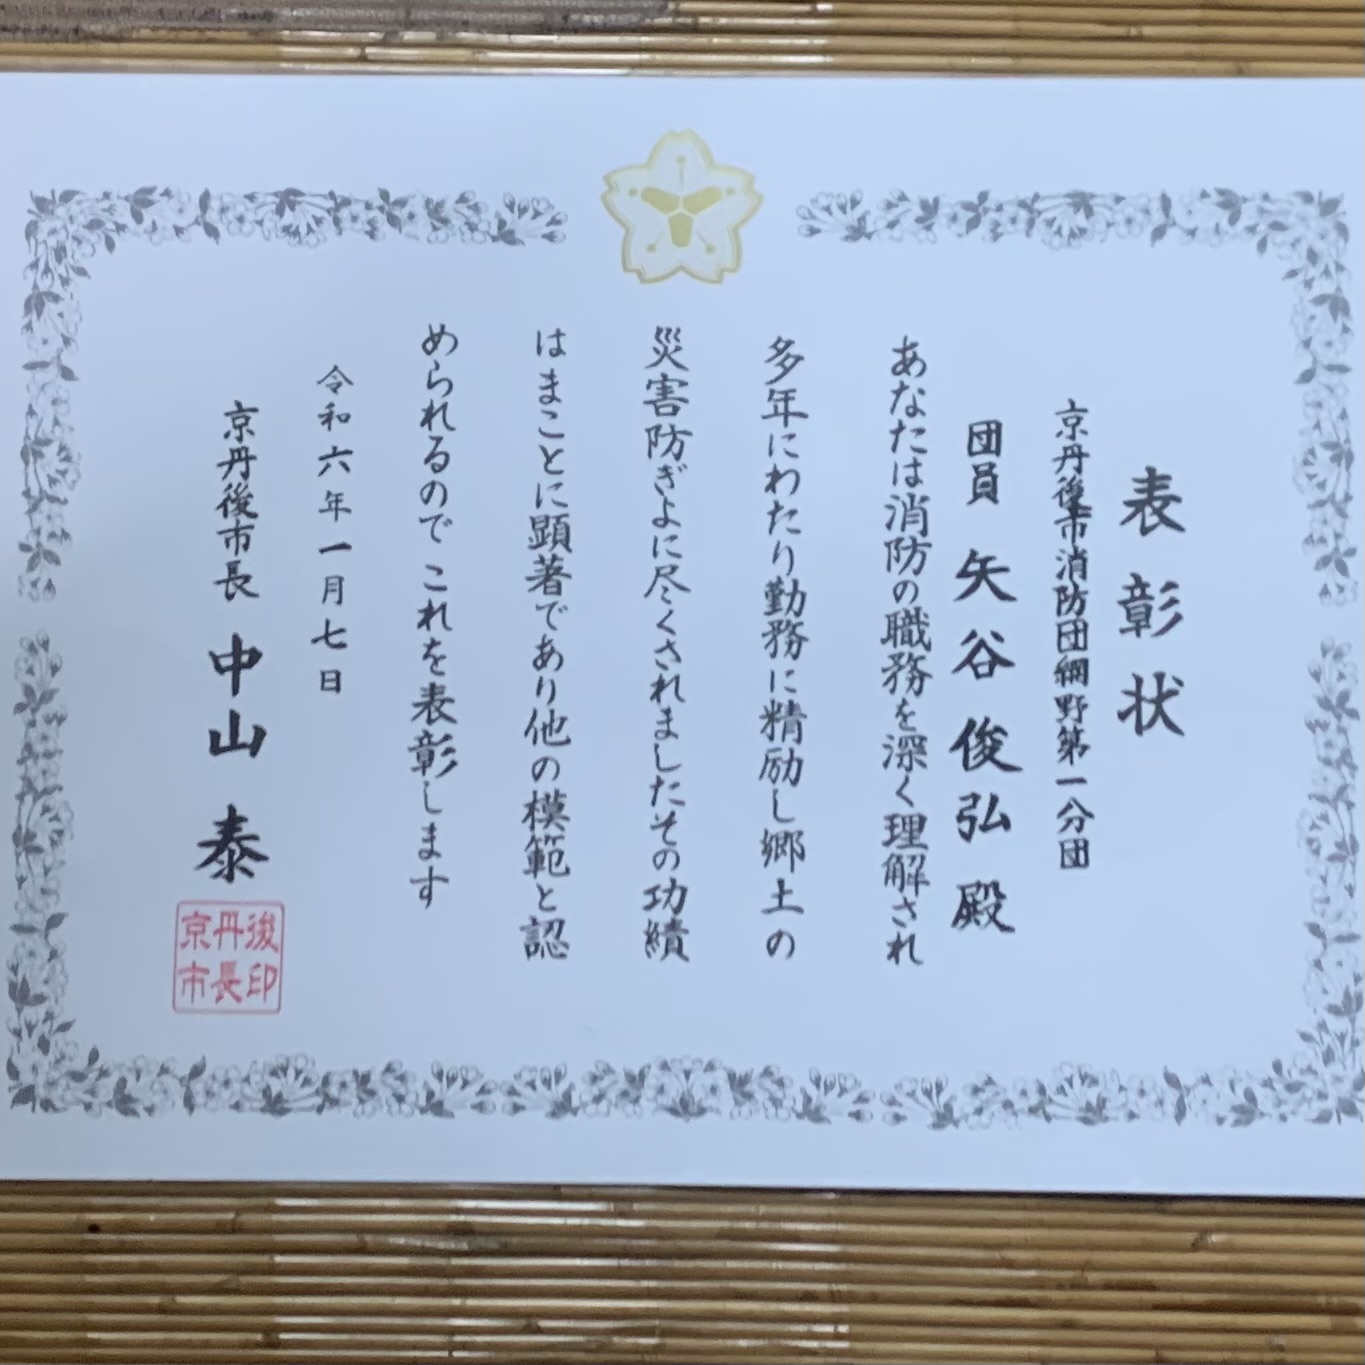 表彰状
京丹後市消防団網野第一分団
団員 矢谷俊弘 殿
あなたは消防の職務を深く理解され
多年にわたり勤務に精励し郷土の
災害防ぎよに尽くされましたその功績
はまことに顕著であり他の模範と認
められるので これを表彰します
令和六年一月七日
京丹後市長 中山 泰
京丹後
市長印